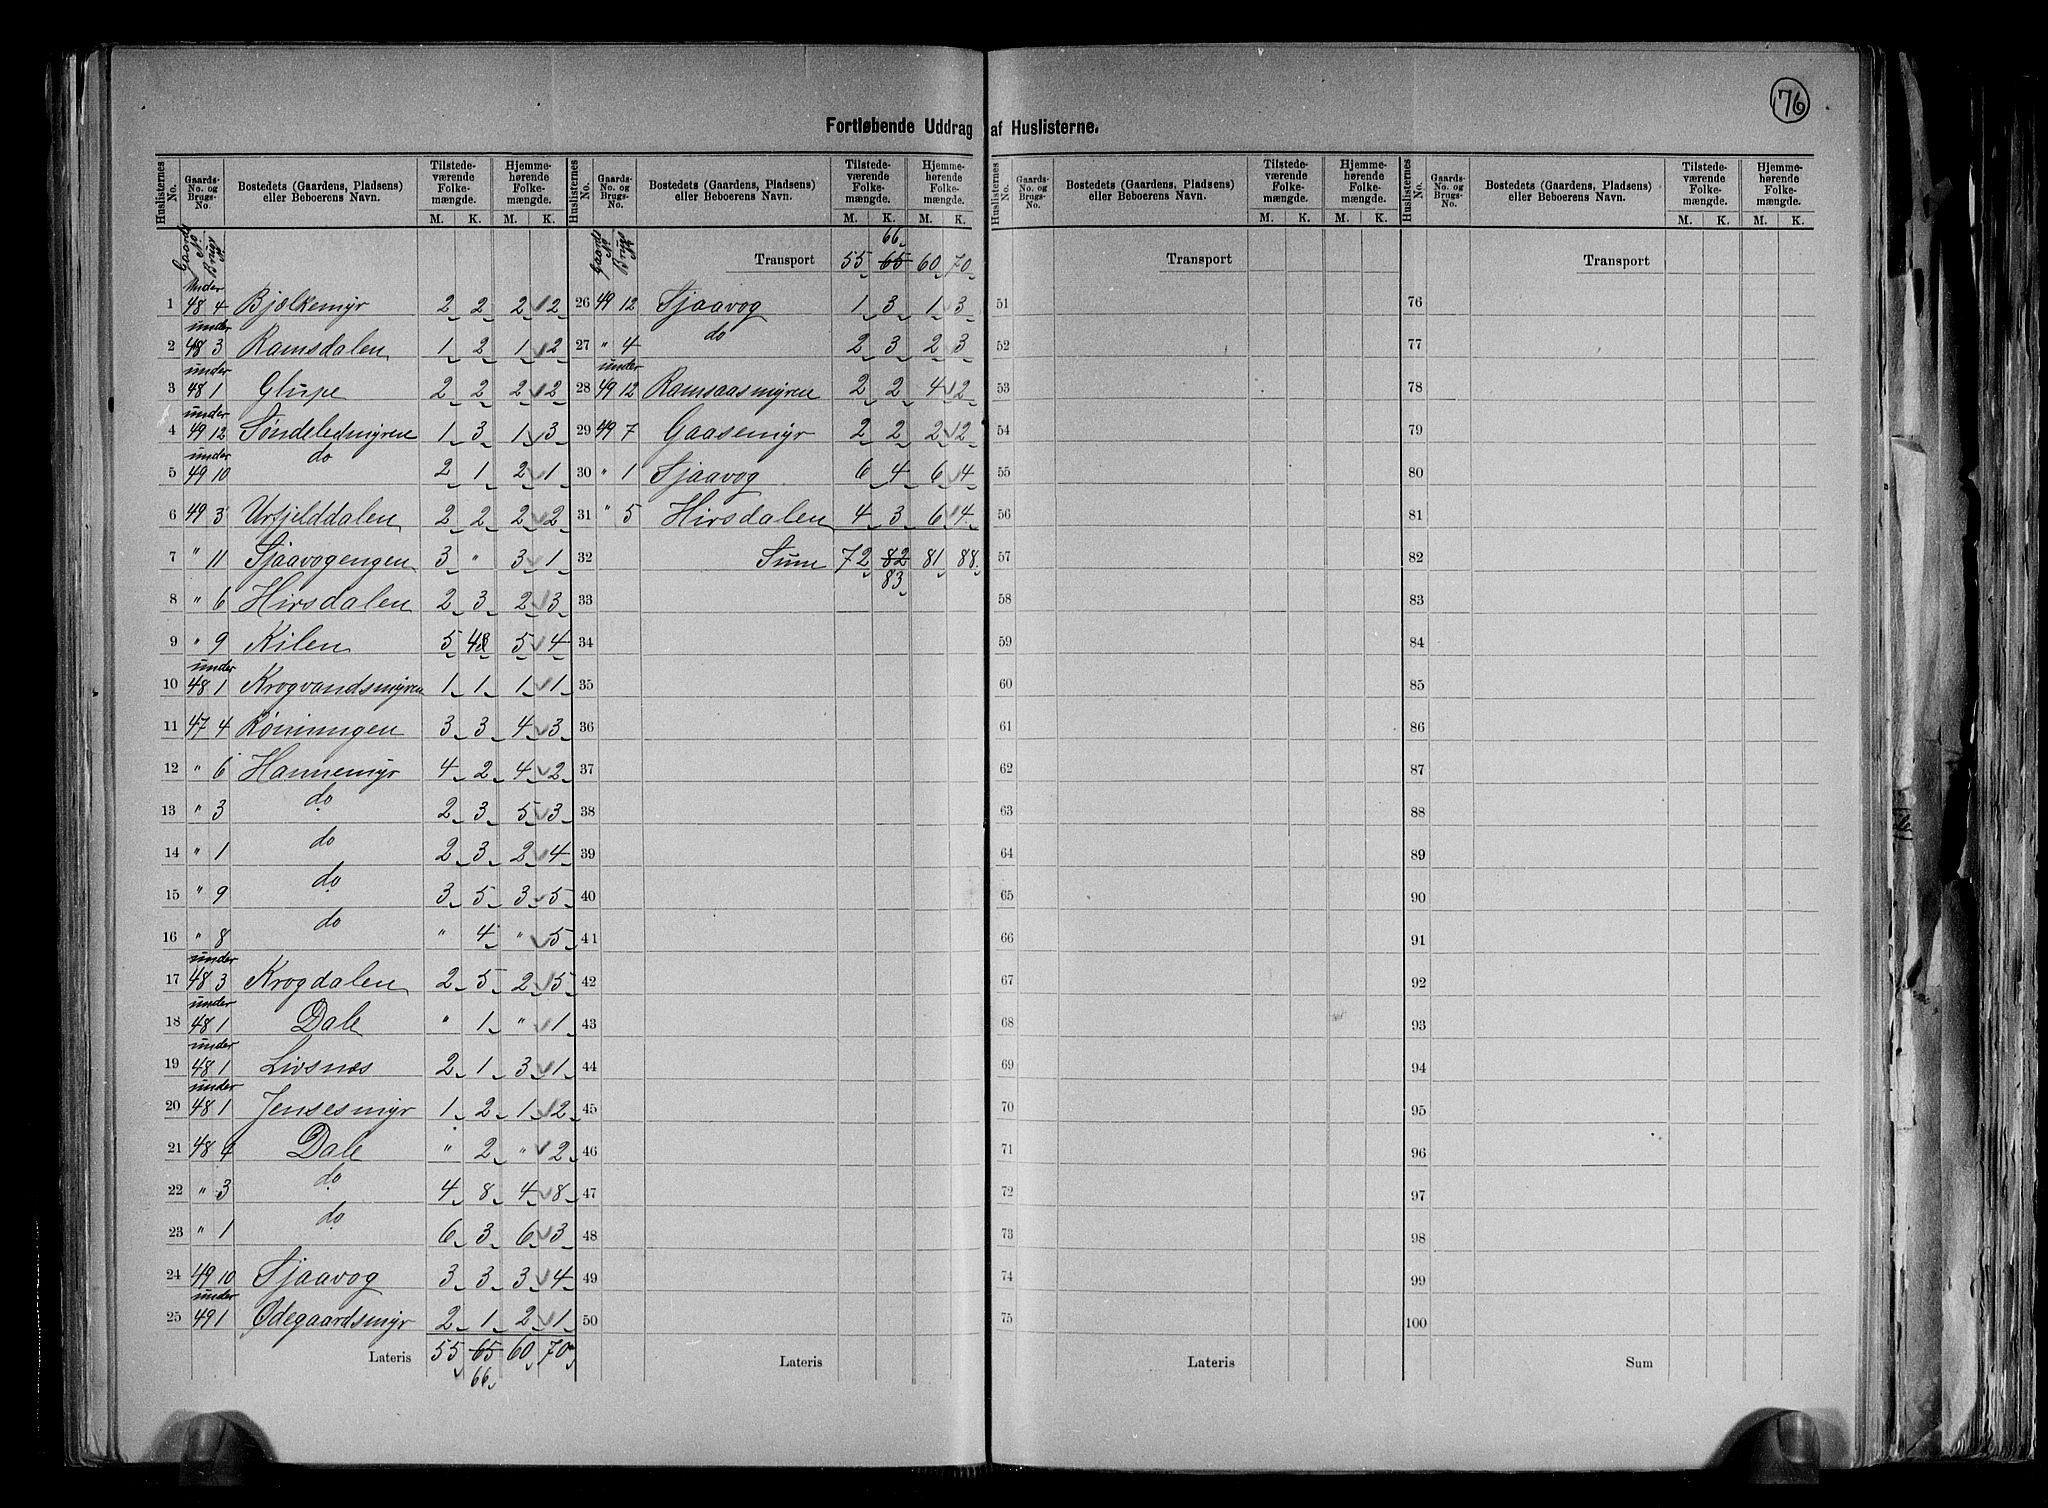 176
Fortløbende Uddrag af Huslisterne.
Huslisternes No. Gaards-No. og Brugs-No. Bostedets (Gaardens, Pladsen) eller Beboerens Navn. Tilstede-værende Folke-mængde. M. K. Hjemme-hørende Folke-mængde. M. K.
Gaards No Brugs No
1 under 48 4 Bjelkemyr 2 2 2 2
2 under 48 3 Ramsdalen 1 2 1 2
3 under 48 1 Glupe 2 2 2 2
4 under 49 12 Søndeledmyren 1 3 1 3
5 under 49 10 do 2 1 2 1
6 49 3 Urfjelddalen 2 2 2 2
7 " 11 Sjaavogengen 3 " 3 1
8 " 6 Hirsdalen 2 3 2 3
9 " 9 Kilen 5 4 5 4
10 under 48 1 Krogvandsmyren 1 1 1 1
11 47 4 Rønningen 3 3 4 3
12 " 6 Hannemyr 4 2 4 2
13 " 3 do 2 3 5 3
14 " 1 do 2 3 2 4
15 " 9 do 3 5 3 5
16 " 8 do " 4 " 5
17 under 48 3 Krogdalen 2 5 2 5
18 under 48 1 Dale " 1 " 1
19 under 48 1 Livsnes 2 1 3 1
20 under 48 1 Jensesmyr 1 2 1 2
21 48 4 Dale " 2 " 2
22 " 3 do 4 8 4 8
23 " 1 do 6 3 6 3
24 49 10 Sjaavog 3 3 3 4
25 under 49 1 Ødegaardsmyr 2 1 2 1
Lateris 55 65 60 70
66
Huslisternes No. Gaards-No. og Brugs-No. Bostedets (Gaardens, Pladsen) eller Beboerens Navn. Tilstede-værende Folke-mængde. M. K. Hjemme-hørende Folke-mængde. M. K.
Gaards No Brugs No
66
Transport 55 65 60 70
26 49 12 Sjaavog 1 3 1 3
27 " 4 do 2 3 2 3
28 under 49 12 Ramsaasmyren 2 2 4 2
29 49 7 Gaasemyr 2 2 2 2
30 " 1 Sjaavog 6 4 6 4
31 " 5 Hirsdalen 4 3 6 4
32 Sum 72 82 81 88
83
33
34
35
36
37
38
39
40
41
42
43
44
45
46
47
48
49
50
Lateris
Huslisternes No. Gaards-No. og Brugs-No. Bostedets (Gaardens, Pladsen) eller Beboerens Navn. Tilstede-værende Folke-mængde. M. K. Hjemme-hørende Folke-mængde. M. K.
Transport
51
52
53
54
55
56
57
58
59
60
61
62
63
64
65
66
67
68
69
70
71
72
73
74
75
Lateris
Huslisternes No. Gaards-No. og Brugs-No. Bostedets (Gaardens, Pladsen) eller Beboerens Navn. Tilstede-værende Folke-mængde. M. K. Hjemme-hørende Folke-mængde. M. K.
Transport
76
77
78
79
80
81
82
83
84
85
86
87
88
89
90
91
92
93
94
95
96
97
98
99
100
Sum